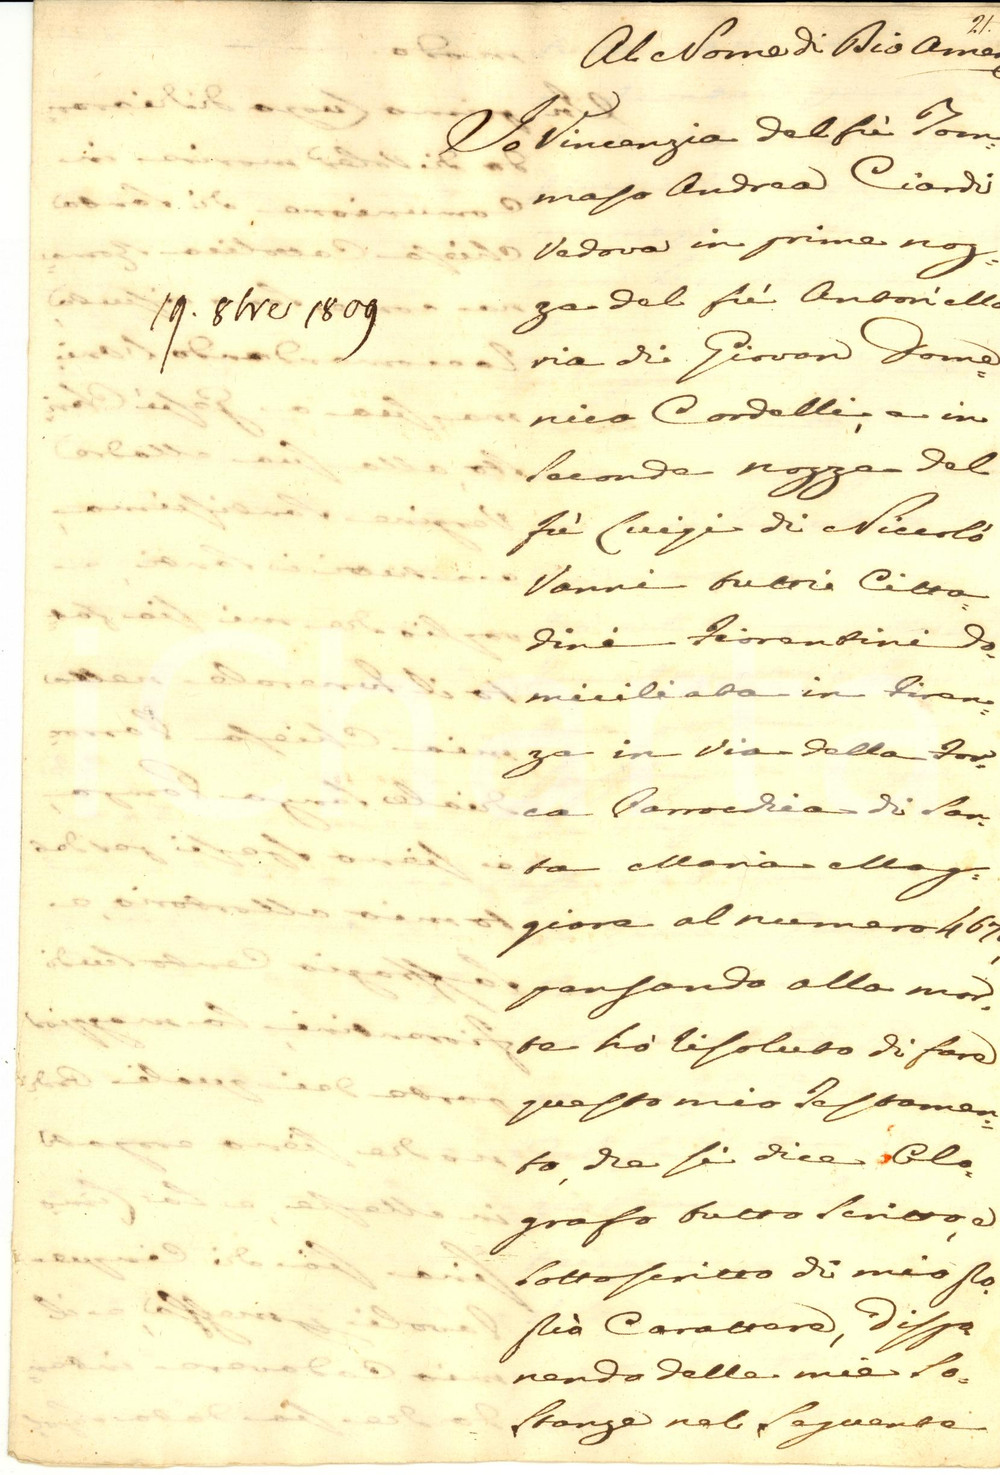 21.
Al Nome di Dio Amen
Io Vincenzia del fù Tom=
maso Andrea Ciardi
Vedova in prime noz=
ze del fù Antonio Ma
ria di Giovan Dome=
nico Cordelli, e in
seconde nozze del
fù Luigi di Niccolò
Vanni tutti Citta=
dini Fiorentini do=
miciliata in Firen=
ze in Via della For=
ca Parrochia di San=
ta Maria Mag=
giore al numero 467
19. 8bre 1809
pensando alla mor=
te hò risoluto di fare
questo mio Testamen=
to, che si dice Olo=
grafo tutto scritto, e
sottoscritto di mio so=
lito Carattere, dispo
nendo delle mie So=
stanze nel seguente